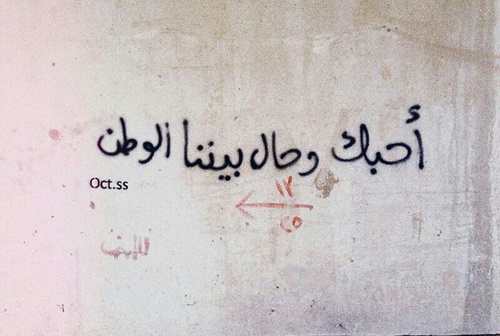 أحبك وحال بيننا الوطن
Oct.ss
١٢
٢٥
للبيت